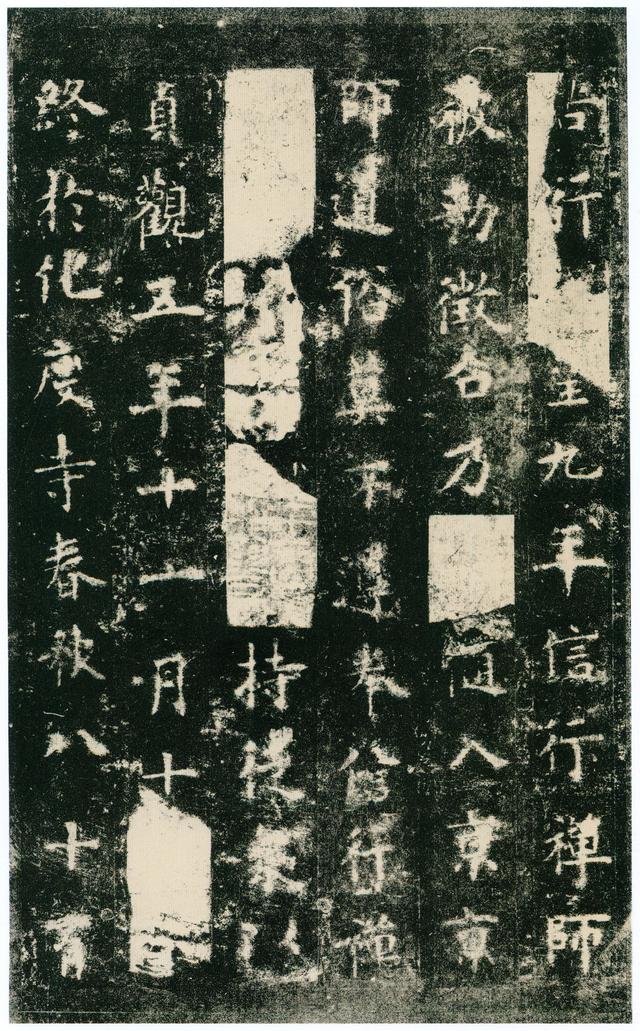 尚行至九年信行禅師
被勅徴召乃徒入京京
師道俗莫不遵奉信行禅
持徒衆以
貞觀五年十一月十
終於化度寺春秋八十有